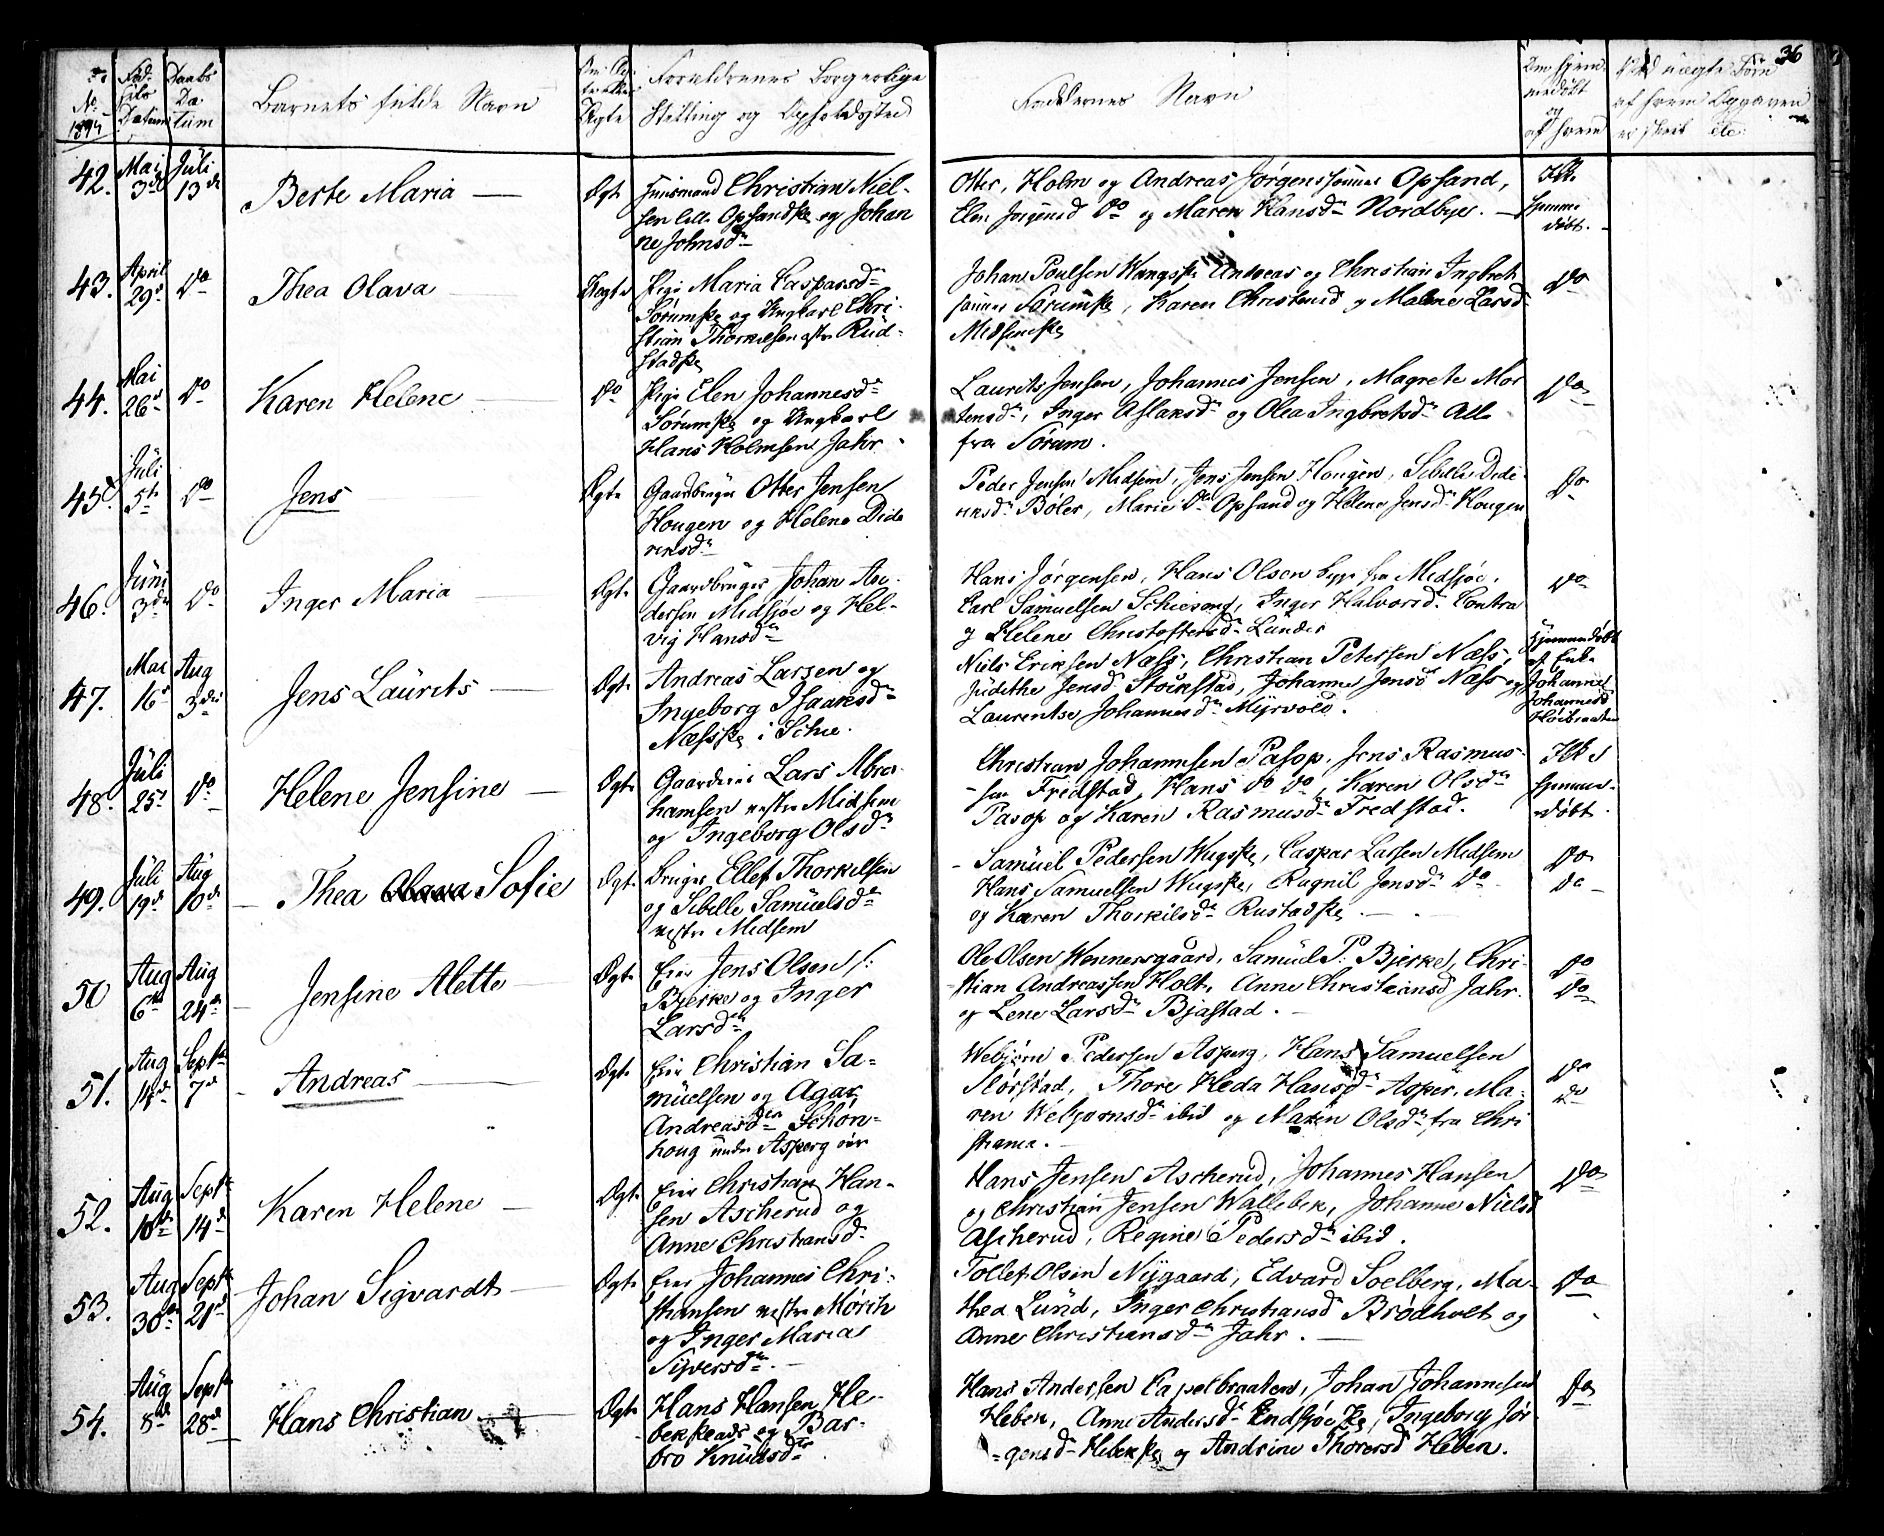 36
No
Fød-
sels
Datum
Daabs
Da
tum
Barnets fulde Navn
Ægte
Forældrenes borgerlige
Stilling og Opholdssted
Faddernes Navn
Om hjem-
medøbt
og
af hvem
42. Mai 3die Juli 13de Berte Maria Ægte
Huusmand Christian Niel-
sen Opsandske og Johan
ne Johnsdr
Otter, Holm og Andreas Jørgenssønner Opsand,
Elen Jørgensd Do og Maren Hansdr Nordbye.
Ikke
hjemme
døbt.
43. April 29de Do Thea Olava Uægte
Pige Maria Caspersdr
Sørumske og Ungkarl Chri-
stian Thorkelsen Rud-
stadske
Johan Poulsen Wangske Andreas og Christian Ingbret-
sønner Sørumske, Karen Christensd og Malene Larsd
Midsemske
Do
44. Mai 26de Do Karen Helene Do
Pige Elen Johannesdr
Sørumske og Ungkarl
Hans Holmsen Jahr
Laurits Jensen, Johannes Jensen, Magrete Mor
tensdr, Inger Aslaksdr og Olea Ingbretsdr Alle
fra Sørum.
Do
45. Juli 5te Do Jens Ægte
Gaardbruger Otter Jensen
Hougen og Helene Dide
riksdr
Peder Jensen Midsem, Jens Jensen Hougen, Sibille Dide-
riksdr Bøler, Marie Do Opsand og Helene Jensdr Hougen
Do
46. Juni 3die Do Inger Maria Ægte
Gaardbruger Johan An-
dersen Midsjøe og Hel-
vig Hansdr
Hans Jørgensen, Hans Olsen begge fra Midsjøe,
Carl Samuelsen Schiesong, Inger Halvorsdr Contra
og Helene Christoffersdr Lunder
Do
47. Mai 16de Aug 3die Jens Laurits Ægte
Andreas Larsen og
Ingeborg Isaaksdr
Næsske i Schie.
Niels Eriksen Næss, Christian Petersen Næss,
Judithe Jensd Stokstad, Johanne Jensd Næss og
Laurentse Johannesdr Myrvold.
Hjemmedøbt
af Enke
Johanne
Johannesd
Høibraaten
48. Juli 25de Do Helene Jensine Ægte
Gaardeier Lars Abra-
hamsen vestre Midsem
og Ingeborg Olsdr
Christian Johannesen Pasop, Jens Rasmus-
sen Fredstad, Hans Do Do, Karen Olsdr
Pasop og Karen Rasmusdr Fredstad.
Ikke
hjemme-
døbt
49. Juli 19de Aug 10de Thea Olava Sofie Ægte
Bruger Ellef Thorkelsen
og Sibille Samuelsdr
vestre Midsem
Samuel Pedersen Wugske, Caspar Larsen Midsem
Hans Samuelsen Wugske, Ragnil Jensdr Do
og Karen Thorkilsdr Rustadske
Do
Do
50 Aug 6te Aug 24de Jensine Alette Ægte
Eier Jens Olsen
Bjerke og Inger
Larsdr
Ole Olsen Wennersgaard, Samuel P. Bjerke, Chri-
stian Andreassen Holt, Anne Christiansd Jahr
og Lene Larsdr Bjastad.
Do
Do
51. Aug 14de Septr 7de Andreas Ægte
Eier Christian Sa-
muelsen og Agar
Andreasdr Schøn-
houg under Asperg
Webjørn Pedersen Asperg, Hans Samuelsen
Størstad, Thore Heda Hansdr Asper, Ma-
ren Webjørnsdr ibid og Maren Olsdr fra Chri
stiania.
Do
Do
52. Aug 10de Septr 14de Karen Helene Ægte
Eier Christian Han-
sen Ascherud og
Anne Christiansd
Hans Jensen Ascherud, Johannes Hansen
og Christian Jensen Wallebek, Johanne Nielsd
Ascherud, Regine Pedersdr ibid.
Do
53. Aug 30de Septr 21de Johan Sigvardt Ægte
Eier Johannes Chri-
stiansen vestre Mørch
og Inger Maria
Siversdr
Tollef Olsen Nygaard, Edvard Soelberg, Ma-
thea Lund, Inger Christiansd Brodholt og
Anne Christiansdr Jahr.
Do
54. Aug 8de Septr 28de Hans Christian Ægte
Hans Hansen He-
bekke og Bar-
bro Knudsdr
Hans Andersen Capelbraaten, Johan Johannesen
Heben, Anne Andersdr Endsjøeske, Ingeborg Jør-
gensd Hebekske og Andrine Thoresd Heben.
Do